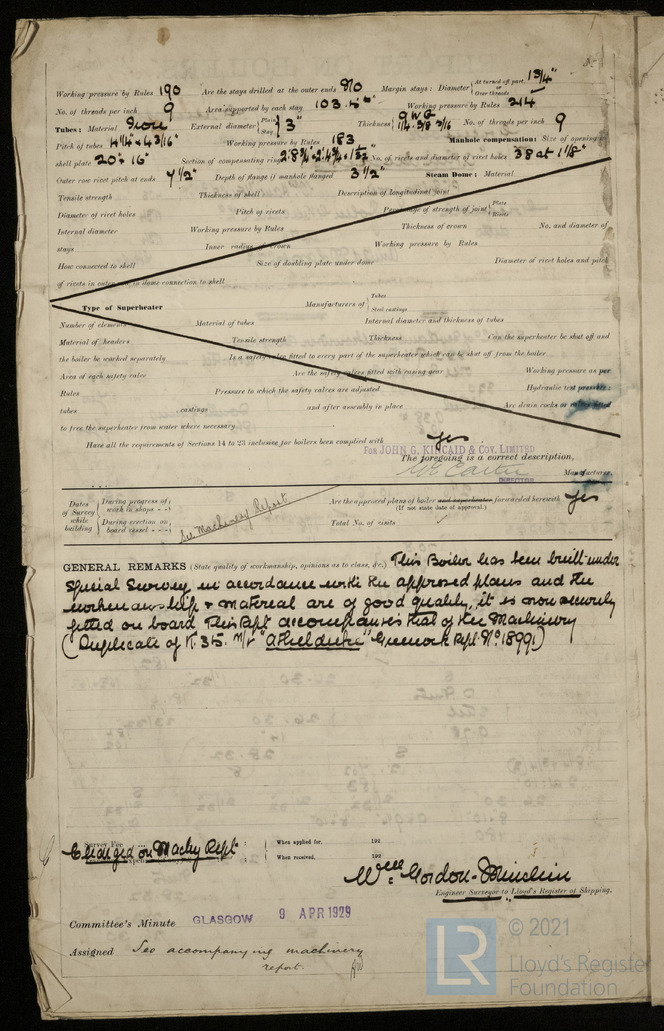 Working pressure by Rules 190 Are the stays drilled at the outer ends No Margin stays: Diameter { At turned off part, or Over threads 1 3/4"
No. of threads per inch 9 Area supported by each stay Working pressure by Rules 214
Tubes: Material Iron External diameter { Plain Stay 3" Thickness { 9 WG 1/4 . 5/16 No. of threads per inch 9
Pitch of tubes Working pressure by Rules 183 Manhole compensation: Size of opening in
shell plate 20" x 16" Section of compensating ring No. of rivets and diameter of rivet holes 38 at 1 1/8"
Outer row rivet pitch at ends 7 1/2" Depth of flange if manhole flanged 3 1/2" Steam Dome: Material
Tensile strength Thickness of shell Description of longitudinal joint
Diameter of rivet holes Pitch of rivets Percentage of strength of joint { Plate Rivets
Internal diameter Working pressure by Rules Thickness of crown No. and diameter of
stays Inner radius of crown Working pressure by Rules
How connected to shell Size of doubling plate under dome Diameter of rivet holes and pitch
of rivets in outer row in dome connection to shell
Type of Superheater Manufacturers of { Tubes Steel castings
Number of elements Material of tubes Internal diameter and thickness of tubes
Material of headers Tensile strength Thickness Can the superheater be shut off and
the boiler be worked separately Is a safety valve fitted to every part of the superheater which can be shut off from the boiler
Area of each safety valve Are the safety valves fitted with easing gear Working pressure as per
Rules Pressure to which the safety valves are adjusted Hydraulic test pressure:
tubes castings and after assembly in place Are drain cocks or valves fitted
to free the superheater from water where necessary
Have all the requirements of Sections 14 to 23 inclusive for boilers been complied with yes
FOR JOHN G. KINCAID & COY. LIMITED
The foregoing is a correct description,
Manufacturer.
Dates of Survey while building { During progress of work in shops - - During erection on board vessel - - - } See Machinery Report
Are the approved plans of boiler and superheater forwarded herewith yes
(If not state date of approval.)
Total No. of visits
GENERAL REMARKS (State quality of workmanship, opinions as to class, &c.) This Boiler has been built under
Special Survey in accordance with the approved plans and the
workmanship & material are of good quality, it is now securely
fitted on board. This Rept accompanies that of the Machinery
(Duplicate of K. 35. M/V "Athelduke" Greenock Rept. No 18991)
Survey Fee When applied for, 192
Charged on Machy Rept. When received, 192
Wm Gordon-
Engineer Surveyor to Lloyd's Register of Shipping.
Committee's Minute GLASGOW 9 APR 1929
Assigned See accompanying machinery
report.
LR © 2021
Lloyd's Register
Foundation